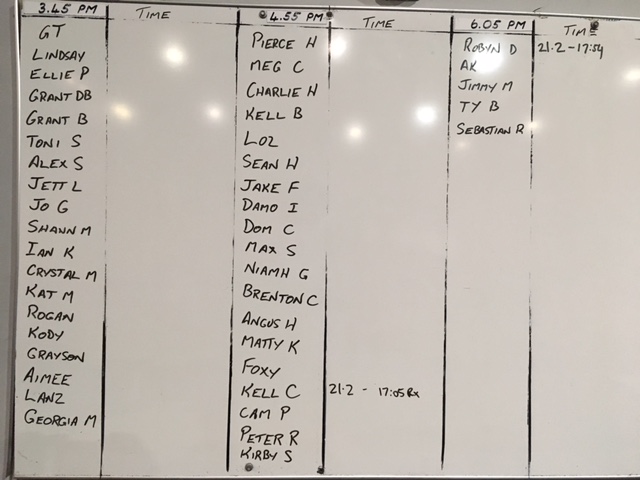 3.45 PM
TIME
GT
LINDSAY
ELLIE P
GRANT DB
GRANT B
TONI S
ALEX S
JETT L
JO G
SHAUN M
IAN K
CRYSTAL M
KAT M
ROGAN
KODY
GRAYSON
AIMEE
LANZ
GEORGIA M
4.55 PM
TIME
PIERCE H
MEG C
CHARLIE H
KELL B
LOZ
SEAN H
JAKE F
DAMO I
DOM C
MAX S
NIAMH G
BRENTON C
ANGUS H
MATTY K
FOXY
KELL C 21.2 - 17:05 Rx
CAM P
PETER R
KIRBY S
6.05 PM
TIME
ROBYN D 21.2 - 17:54
AK
JIMMY M
TY B
SEBASTIAN R